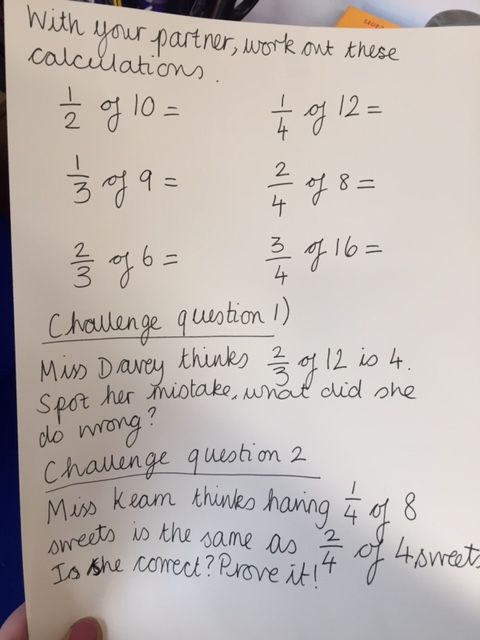 With your partner, work out these
calculations.
1/2 of 10 = 1/4 of 12 =
1/3 of 9 = 2/4 of 8 =
2/3 of 6 = 3/4 of 16 =
Challenge question 1)
Miss Davey thinks 2/3 of 12 is 4.
Spot her mistake, what did she
do wrong?
Challenge question 2
Miss Keam thinks having 1/4 of 8
sweets is the same as 2/4 of 4 sweets
Is she correct? Prove it!